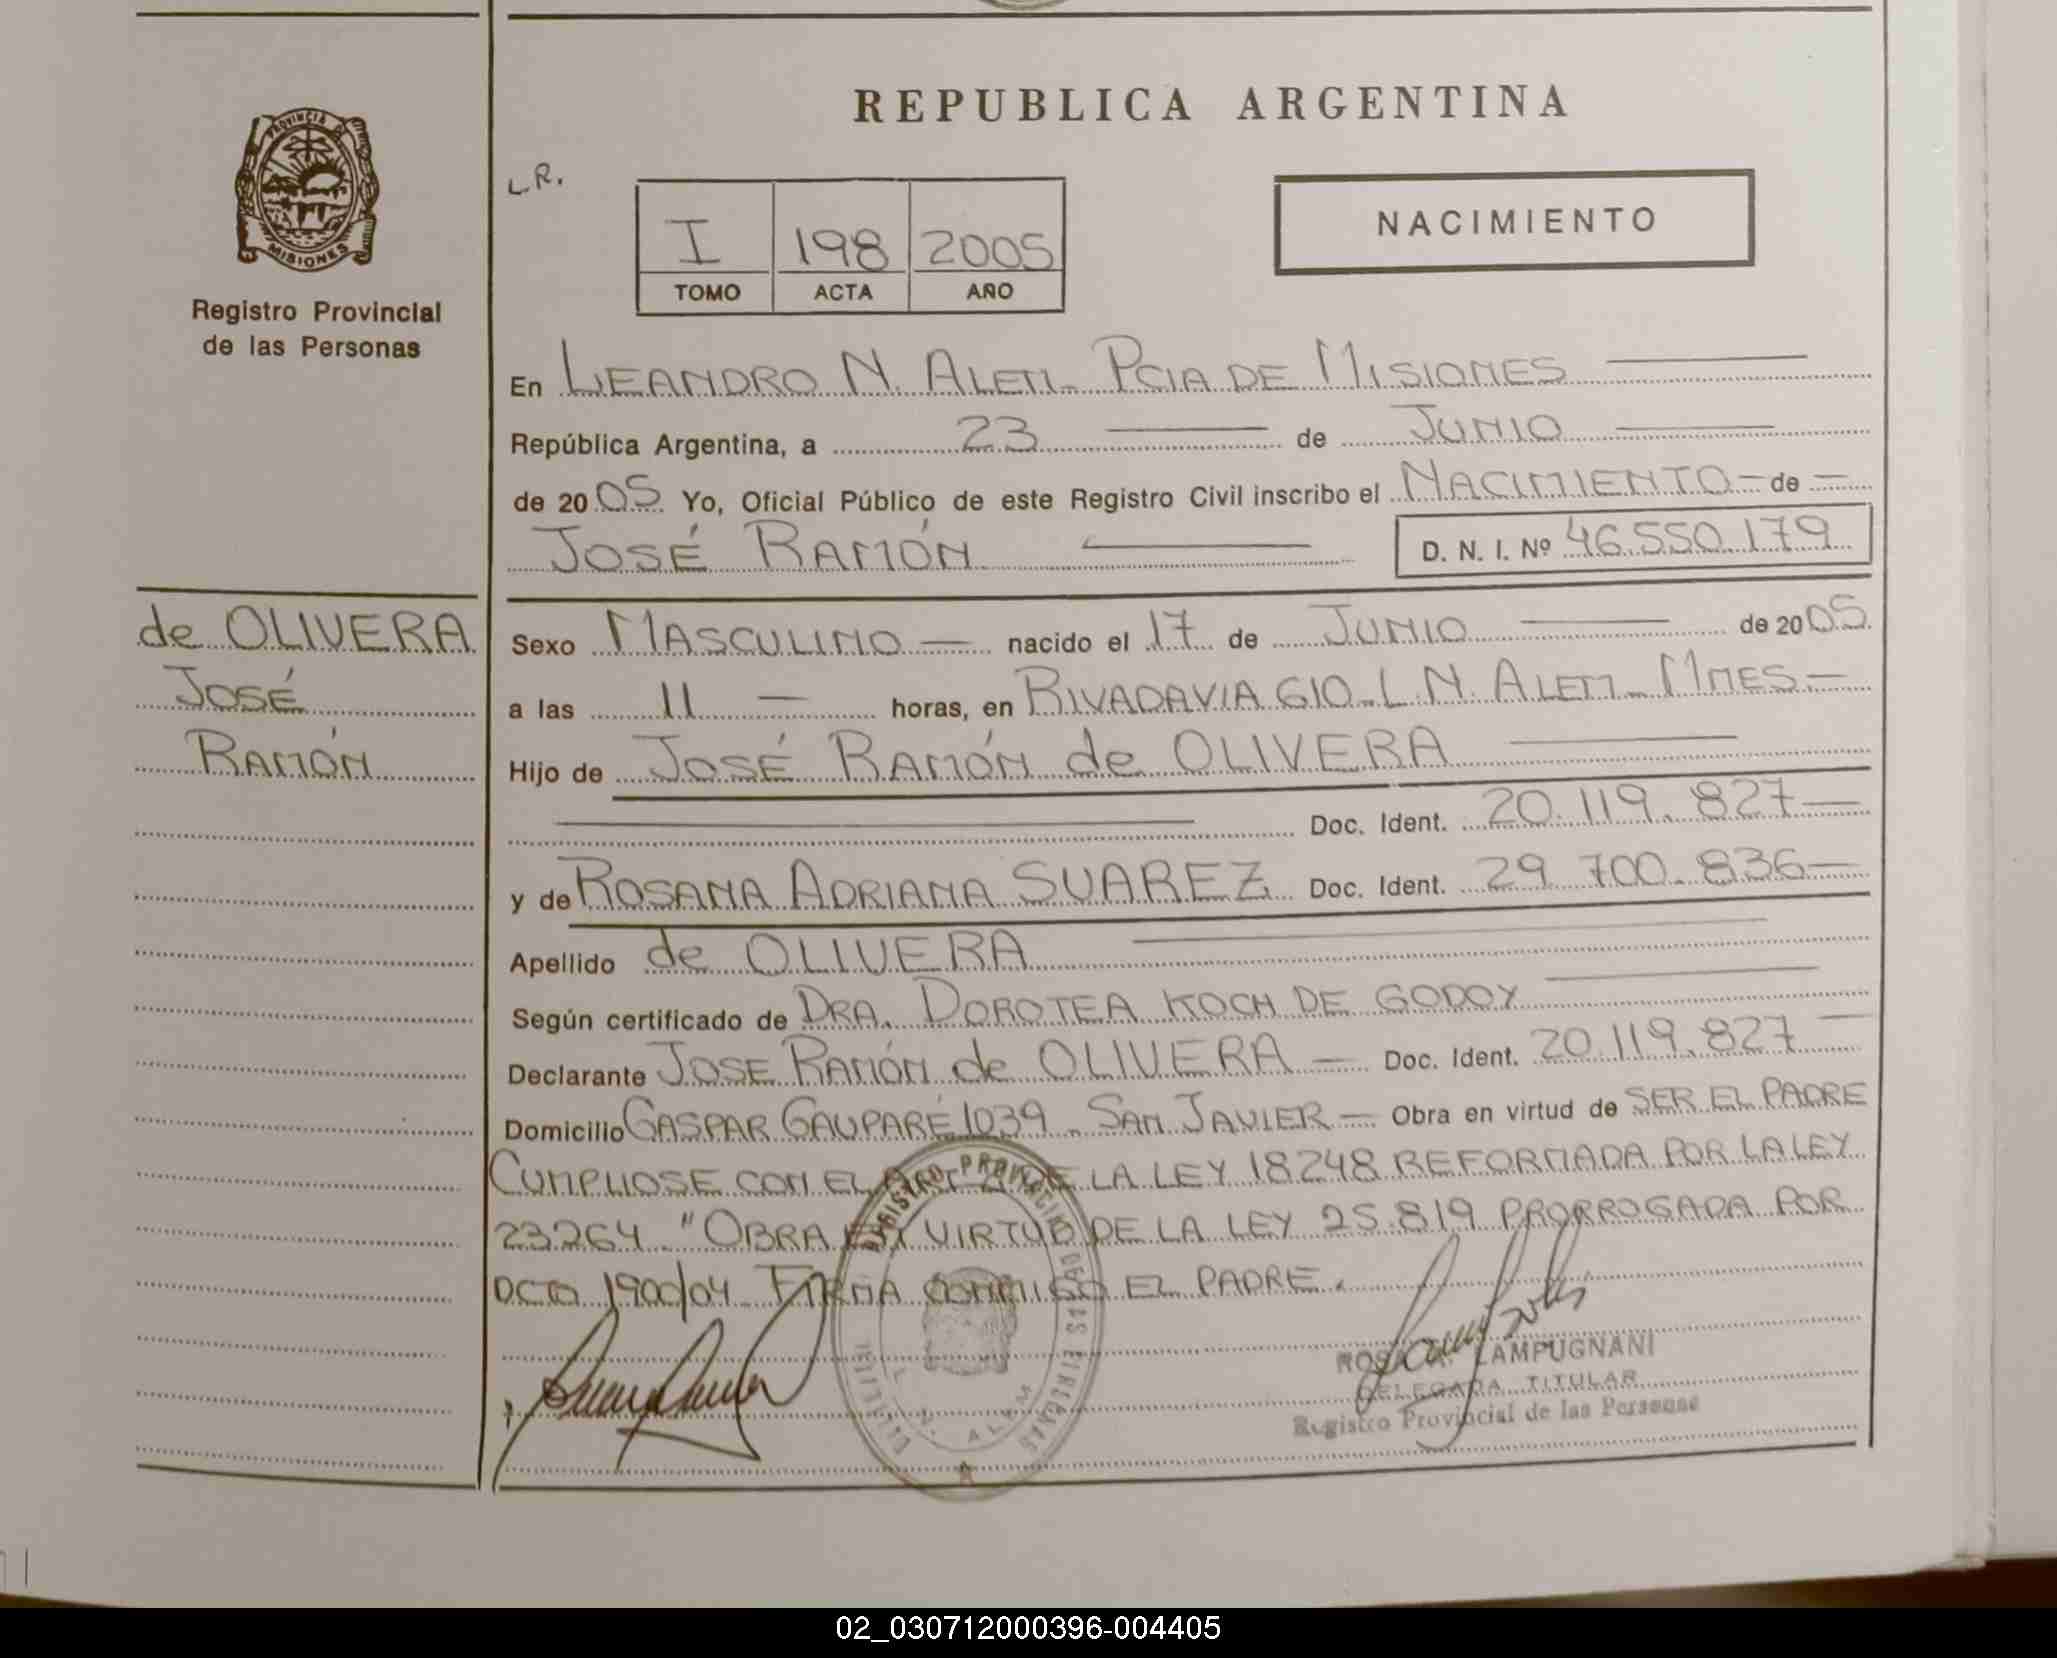 REPUBLICA ARGENTINA
PROVINCIA DE
MISIONES
Registro Provincial
de las Personas
L.R.
I 198 2005
TOMO ACTA AÑO
NACIMIENTO
En LEANDRO N. ALEM - PCIA DE MISIONES
República Argentina, a 23 de JUNIO
de 2005 Yo, Oficial Público de este Registro Civil inscribo el NACIMIENTO - de -
JOSÉ RAMÓN D. N. I. Nº 46.550.179
de OLIVERA
JOSÉ
RAMÓN
Sexo MASCULINO - nacido el 17 de JUNIO de 2005
a las 11 - horas, en RIVADAVIA 610 - L.N. ALEM - MNES -
Hijo de JOSÉ RAMÓN de OLIVERA
Doc. Ident. 20.119.827 -
y de ROSANA ADRIANA SUAREZ Doc. Ident. 29.700.836 -
Apellido de OLIVERA
Según certificado de DRA. DOROTEA KOCH DE GODOY
Declarante JOSE RAMÓN de OLIVERA - Doc. Ident. 20.119.827 -
Domicilio GASPAR GAUPARÉ 1039 - SAN JAVIER - Obra en virtud de SER EL PADRE
CUMPLIOSE CON EL DE LA LEY 18248 REFORMADA POR LA LEY
23264 "OBRA EN VIRTUD DE LA LEY 25.819 PRORROGADA POR
DCTO 1900/04 FIRMA CONMIGO EL PADRE.
REGISTRO PROVINCIAL DE LAS PERSONAS
L. N. ALEM
LAMPUGNANI
DELEGADA TITULAR
Registro Provincial de las Personas
02_030712000396-004405